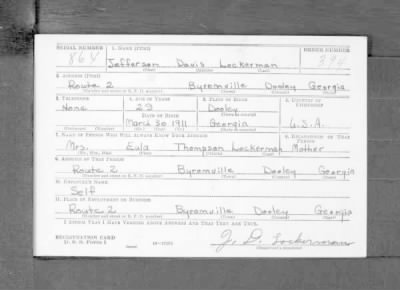 SERIAL NUMBER 1. NAME (Print) ORDER NUMBER
864 Jefferson Davis Lockerman 394
(First) (Middle) (Last)
2. ADDRESS (Print)
Route 2 Byromville Dooley Georgia
3. TELEPHONE 4. AGE IN YEARS 5. PLACE OF BIRTH 6. COUNTRY OF CITIZENSHIP
None 29 Dooley
DATE OF BIRTH
March 30 1911 Georgia U.S.A.
7. NAME OF PERSON WHO WILL ALWAYS KNOW YOUR ADDRESS 8. RELATIONSHIP OF THAT PERSON
Mrs. Eula Thompson Lockerman Mother
9. ADDRESS OF THAT PERSON
Route 2 Byromville Dooley Georgia
10. EMPLOYER'S NAME
Self
11. PLACE OF EMPLOYMENT OR BUSINESS
Route 2 Byromville Dooley Georgia
I AFFIRM THAT I HAVE VERIFIED ABOVE ANSWERS AND THAT THEY ARE TRUE.
REGISTRATION CARD
D. S. S. FORM 1 J. D. Lockerman